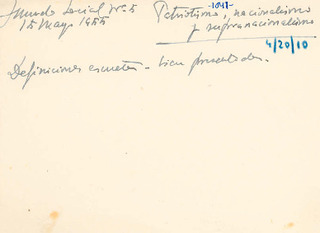 Mundo Social nº 5
15 Mayo 1955
-1047-
Patriotismo, nacionalismo
y supranacionalismo
4/20/10
Definiciones escuetas - bien presentadas.